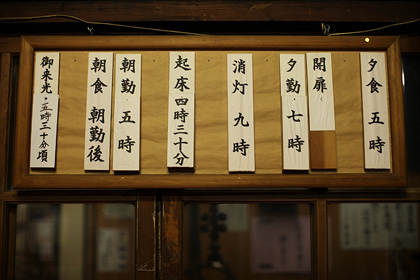 夕食 五時
開扉、
夕勤・七時
消灯 九時
起床 四時三十分
朝勤 五時
朝食 朝勤後
御来光・五時三十分頃